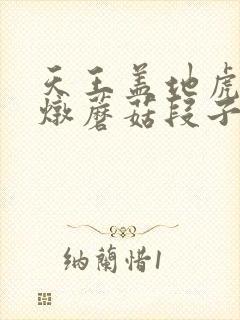 天王盖地虎
燉蘑菇段子
纳蘭惜1